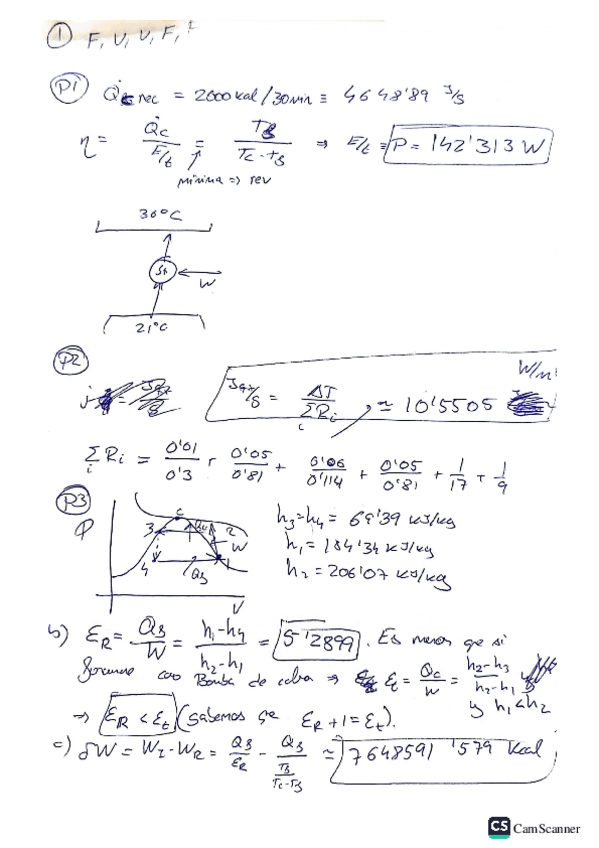 ① F, V, V, F, F
P1 Q̇c nec = 2000 kcal/30min ≡ 4648'89 J/s
η = Q̇c / E/t = TB / Tc-TB ⇒ E/t ≡ P = 142'313 W
mínima => rev
30ºC
W
21ºC
P2
W/m²
= ΔT / Σ Ri ≃ 10'5505
Σ Ri = 0'01/0'3 + 0'05/0'81 + 0'06/0'114 + 0'05/0'81 + 1/17 + 1/9
P3
P C 3 2 W 4 1 QB V
h3=h4 = 69'39 kJ/kg
h1 = 184'34 kJ/kg
h2 = 206'07 kJ/kg
b) ER = QB/W = h1-h4 / h2-h1 = 5'2899. Es menor que si
como Bomba de calor ⇒ Et = Qc/W = h2-h3 / h2-h1 y h1<h2
⇒ ER < Et (sabemos que ER+1=Et).
c) δW = WI - WR = QB/ER - QB / TB/Tc-TB ≃ 7648591'579 kcal
CS CamScanner